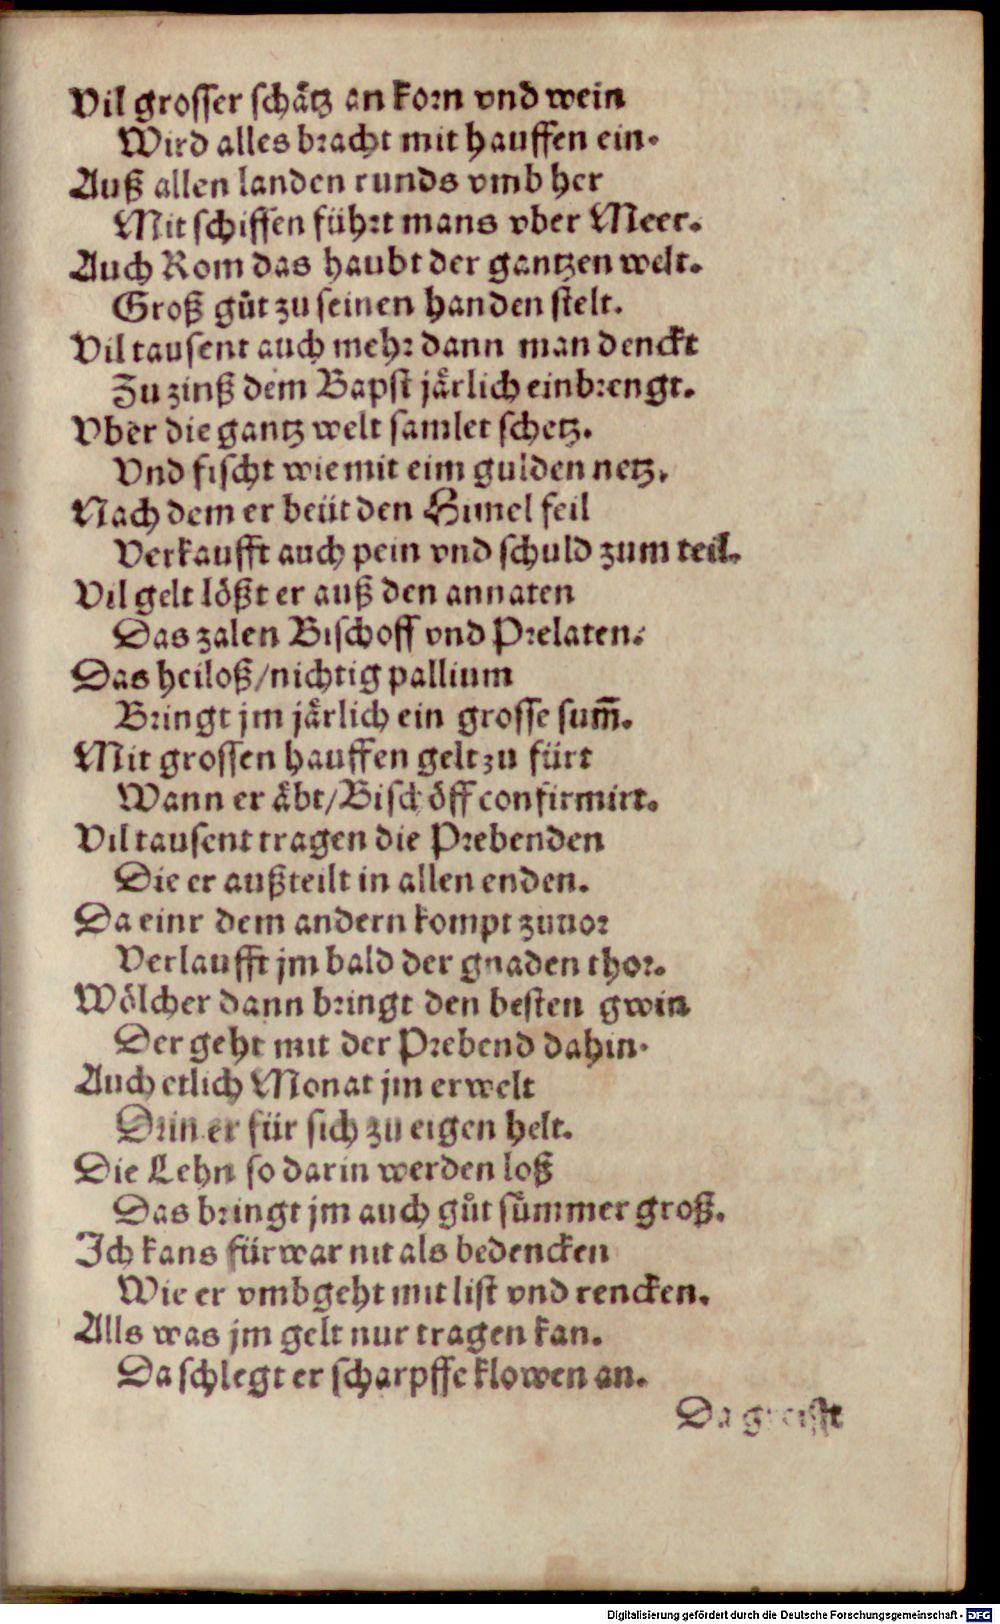 Vil grosser schaͤtz an korn vnd wein
Wird alles bracht mit hauffen ein.
Auß allen landen runds vmb her
Mit schiffen fuͤhrt mans vber Meer.
Auch Rom das haubt der gantzen welt.
Groß guͤt zu seinen handen stelt.
Vil tausent auch mehr dann man denckt
Zu zinß dem Bapst jaͤrlich einbrengt.
Vber die gantz welt samlet schetz.
Vnd fischt wie mit eim gulden netz.
Nach dem er beüt den Himel feil
Verkaufft auch pein vnd schuld zum teil.
Vil gelt loͤßt er auß den annaten
Das zalen Bischoff vnd Prelaten.
Das heiloß/nichtig pallium
Bringt jm jaͤrlich ein grosse sum̃.
Mit grossen hauffen gelt zu fürt
Wann er aͤbt/Bischöff confirmirt.
Vil tausent tragen die Prebenden
Die er außteilt in allen enden.
Da einr dem andern kompt zuuor
Verlaufft jm bald der gnaden thor.
Woͤlcher dann bringt den besten gwin
Der geht mit der Prebend dahin.
Auch etlich Monat jm erwelt
Drin er für sich zu eigen helt.
Die Lehn so darin werden loß
Das bringt jm auch guͤt suͤmmer groß.
Ich kans fürwar nit als bedencken
Wie er vmbgeht mit list vnd rencken.
Alls was jm gelt nur tragen kan.
Da schlegt er scharpffe klowen an.
Da greifft
Digitalisierung gefördert durch die Deutsche Forschungsgemeinschaft - DFG